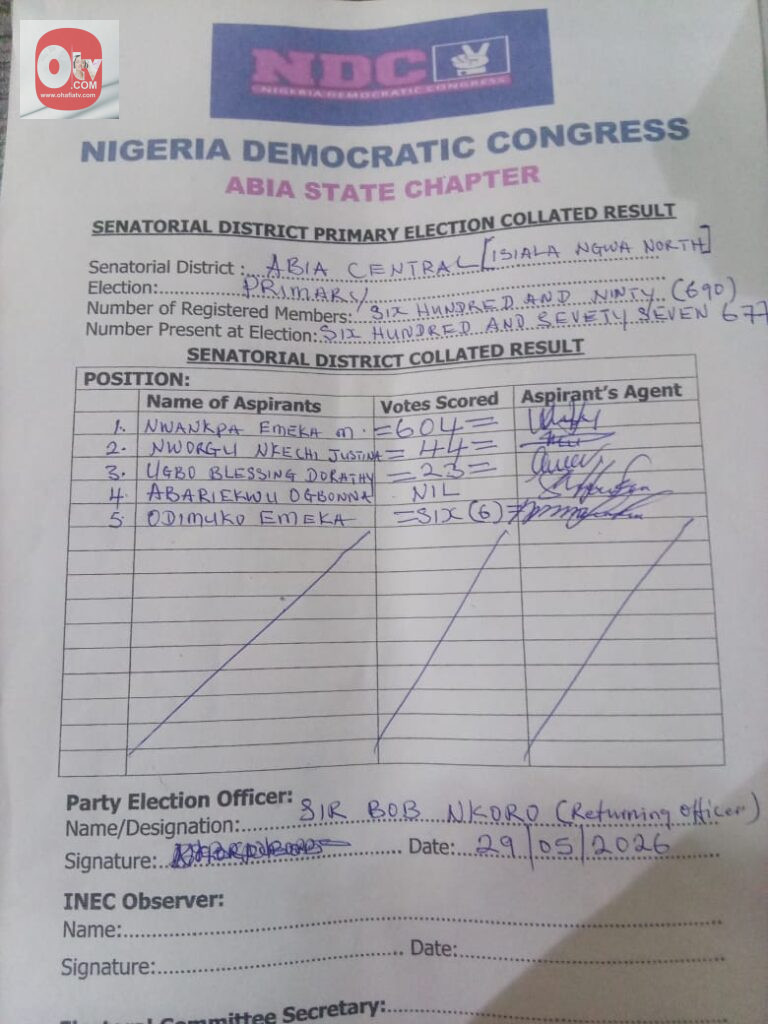 OhTV
.COM
www.ohafiatv.com
NDC
NIGERIA DEMOCRATIC CONGRESS
NIGERIA DEMOCRATIC CONGRESS
ABIA STATE CHAPTER
SENATORIAL DISTRICT PRIMARY ELECTION COLLATED RESULT
Senatorial District: ABIA CENTRAL [ISIALA NGWA NORTH]
Election: PRIMARY
Number of Registered Members: SIX HUNDRED AND NINTY (690)
Number Present at Election: SIX HUNDRED AND SEVETY SEVEN 677
SENATORIAL DISTRICT COLLATED RESULT
POSITION:
Name of Aspirants Votes Scored Aspirant's Agent
1. NWANKPA EMEKA M. =604=
2. NWORGU NKECHI JUSTINA =44=
3. UGBO BLESSING DORATHY =23=
4. ABARIEKWU OGBONNA NIL
5. ODIMUKO EMEKA =SIX (6)=
Party Election Officer:
Name/Designation: SIR BOB NKORO (Returning Officer)
Signature: Date: 29/05/2026
INEC Observer:
Name:
Signature: Date:
Electoral Committee Secretary: